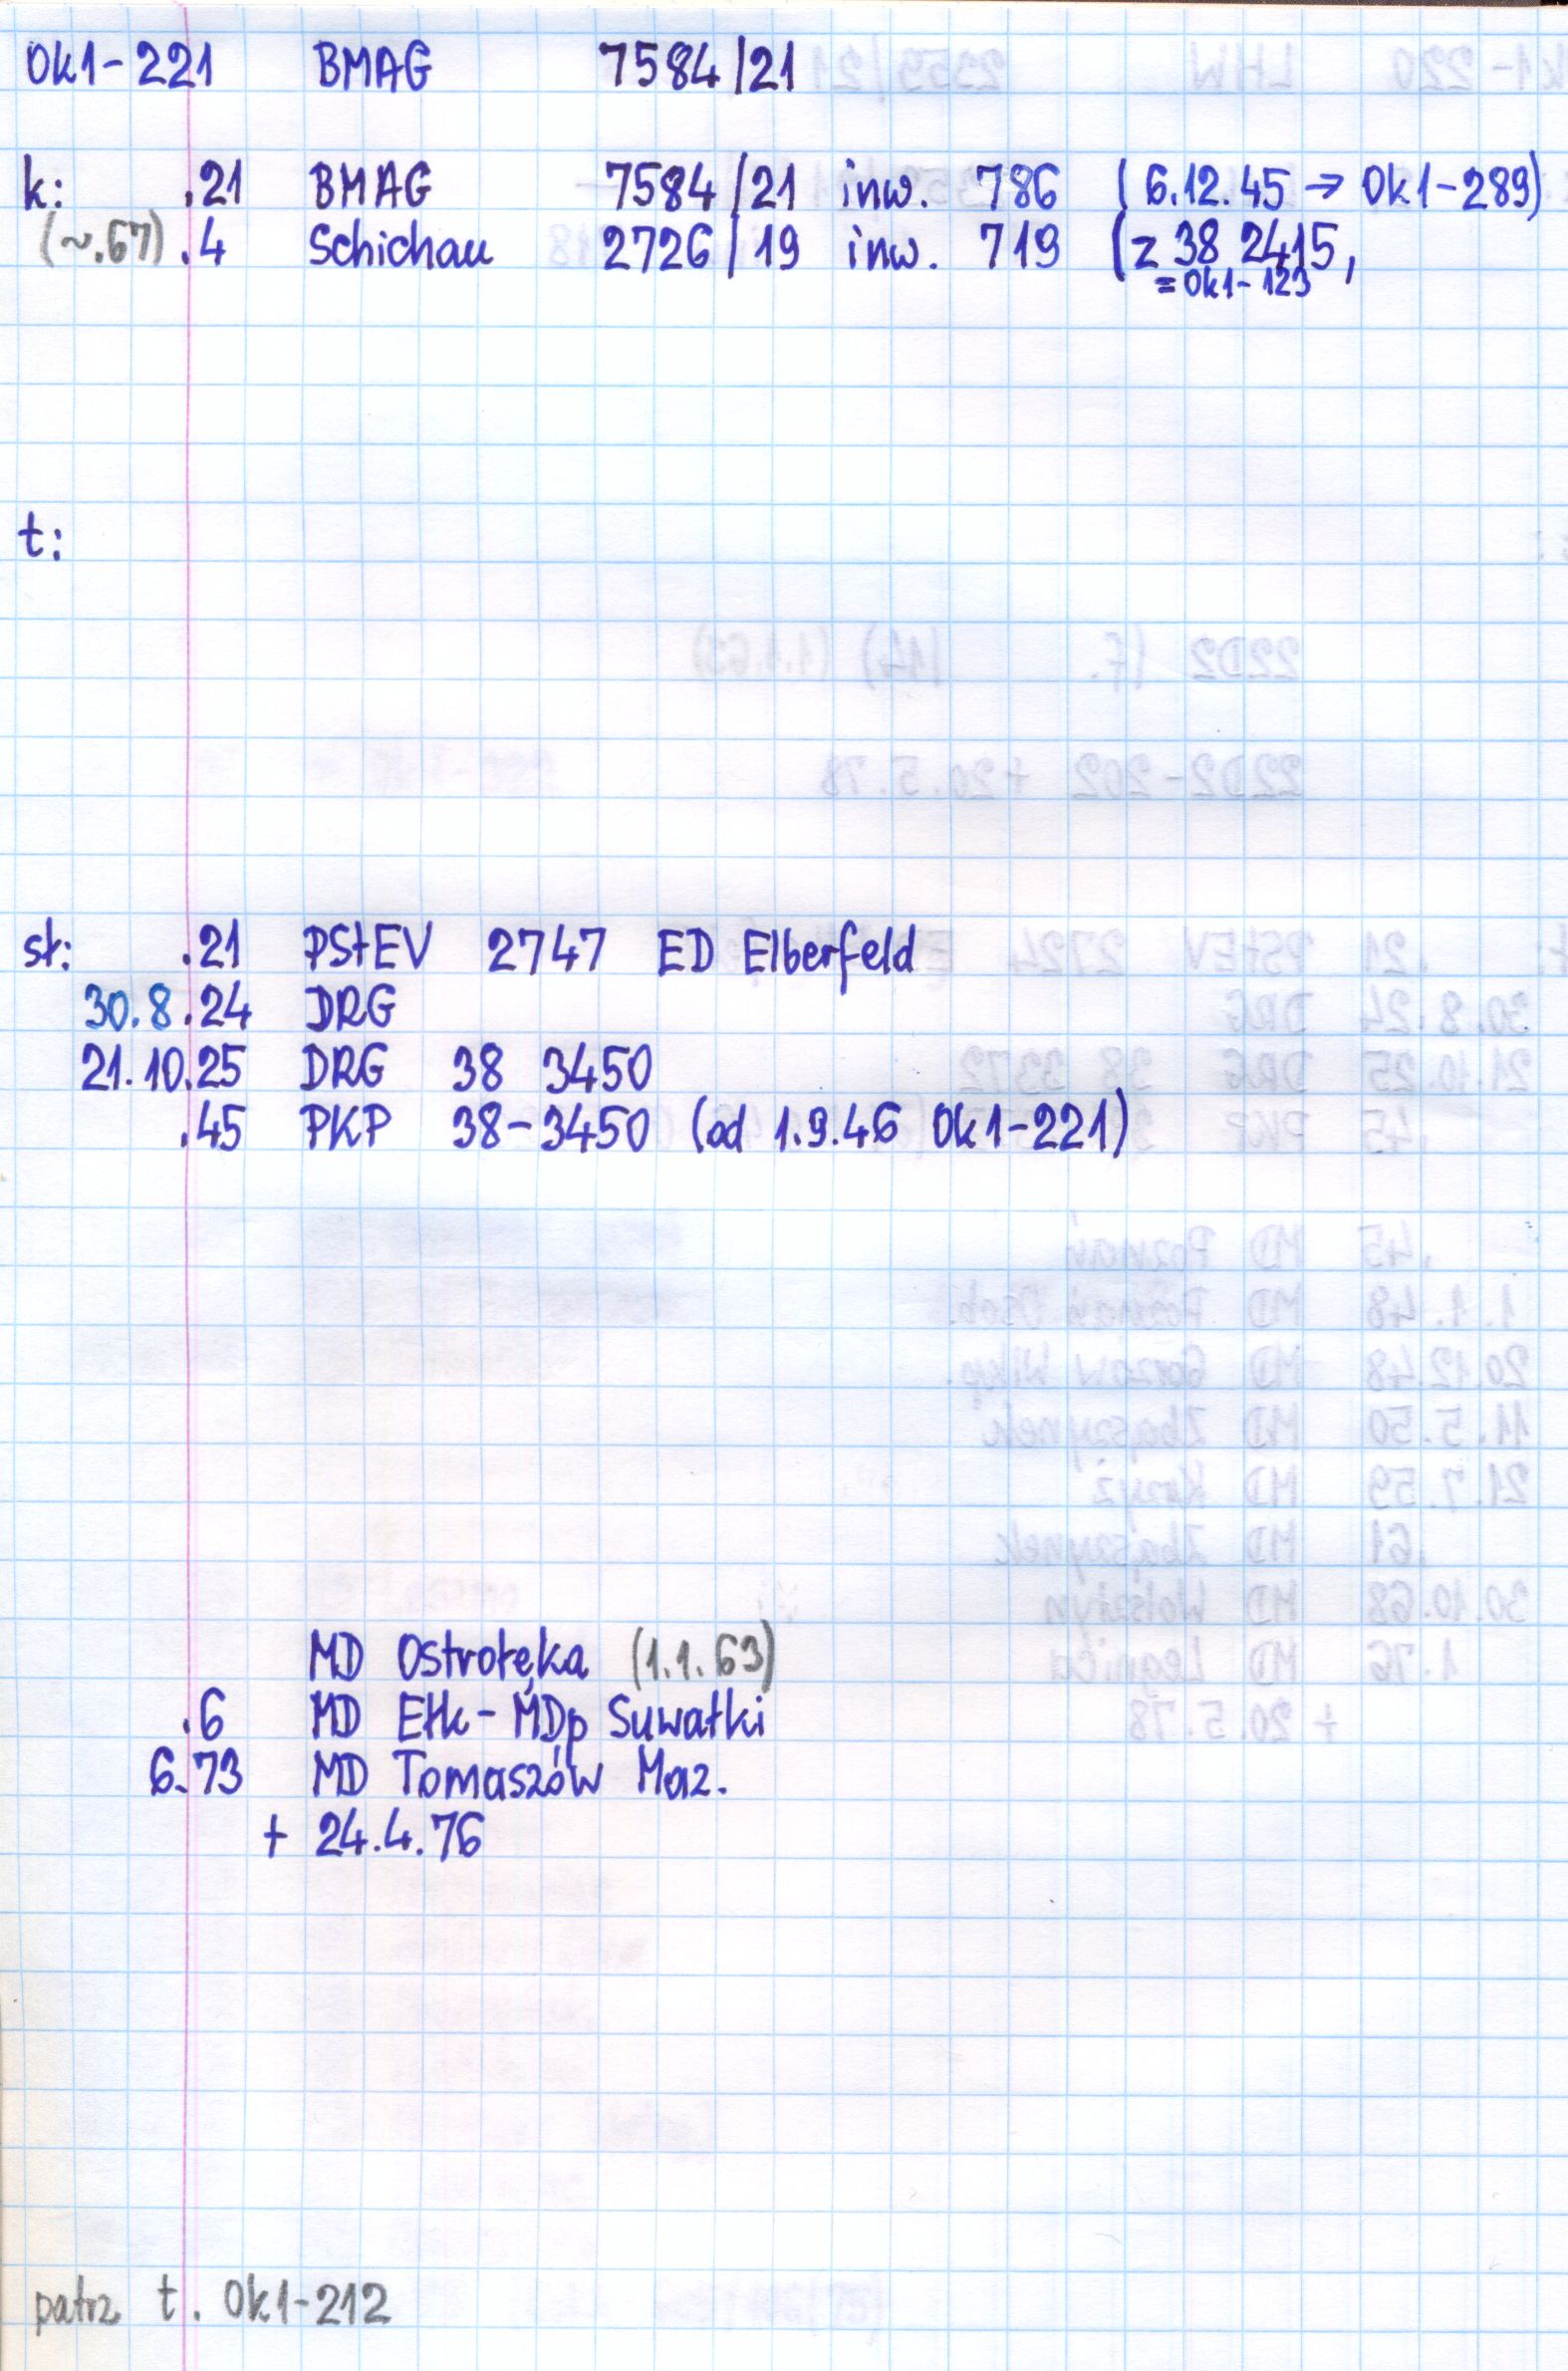 Ok1-221 BMAG 7584/21
k: .21 BMAG 7584/21 inw. 786 (6.12.45 → Ok1-289)
(~.67) .4 Schichau 2726/19 inw. 719 (z 38 2415,
= Ok1-123
t:
st: .21 PStEV 2747 ED Elberfeld
30.8.24 DRG
21.10.25 DRG 38 3450
.45 PKP 38-3450 (od 1.9.46 Ok1-221)
MD Ostrołęka (1.1.63)
.6 MD Ełk-MDp Suwałki
6.73 MD Tomaszów Maz.
+ 24.4.76
patrz t. Ok1-212